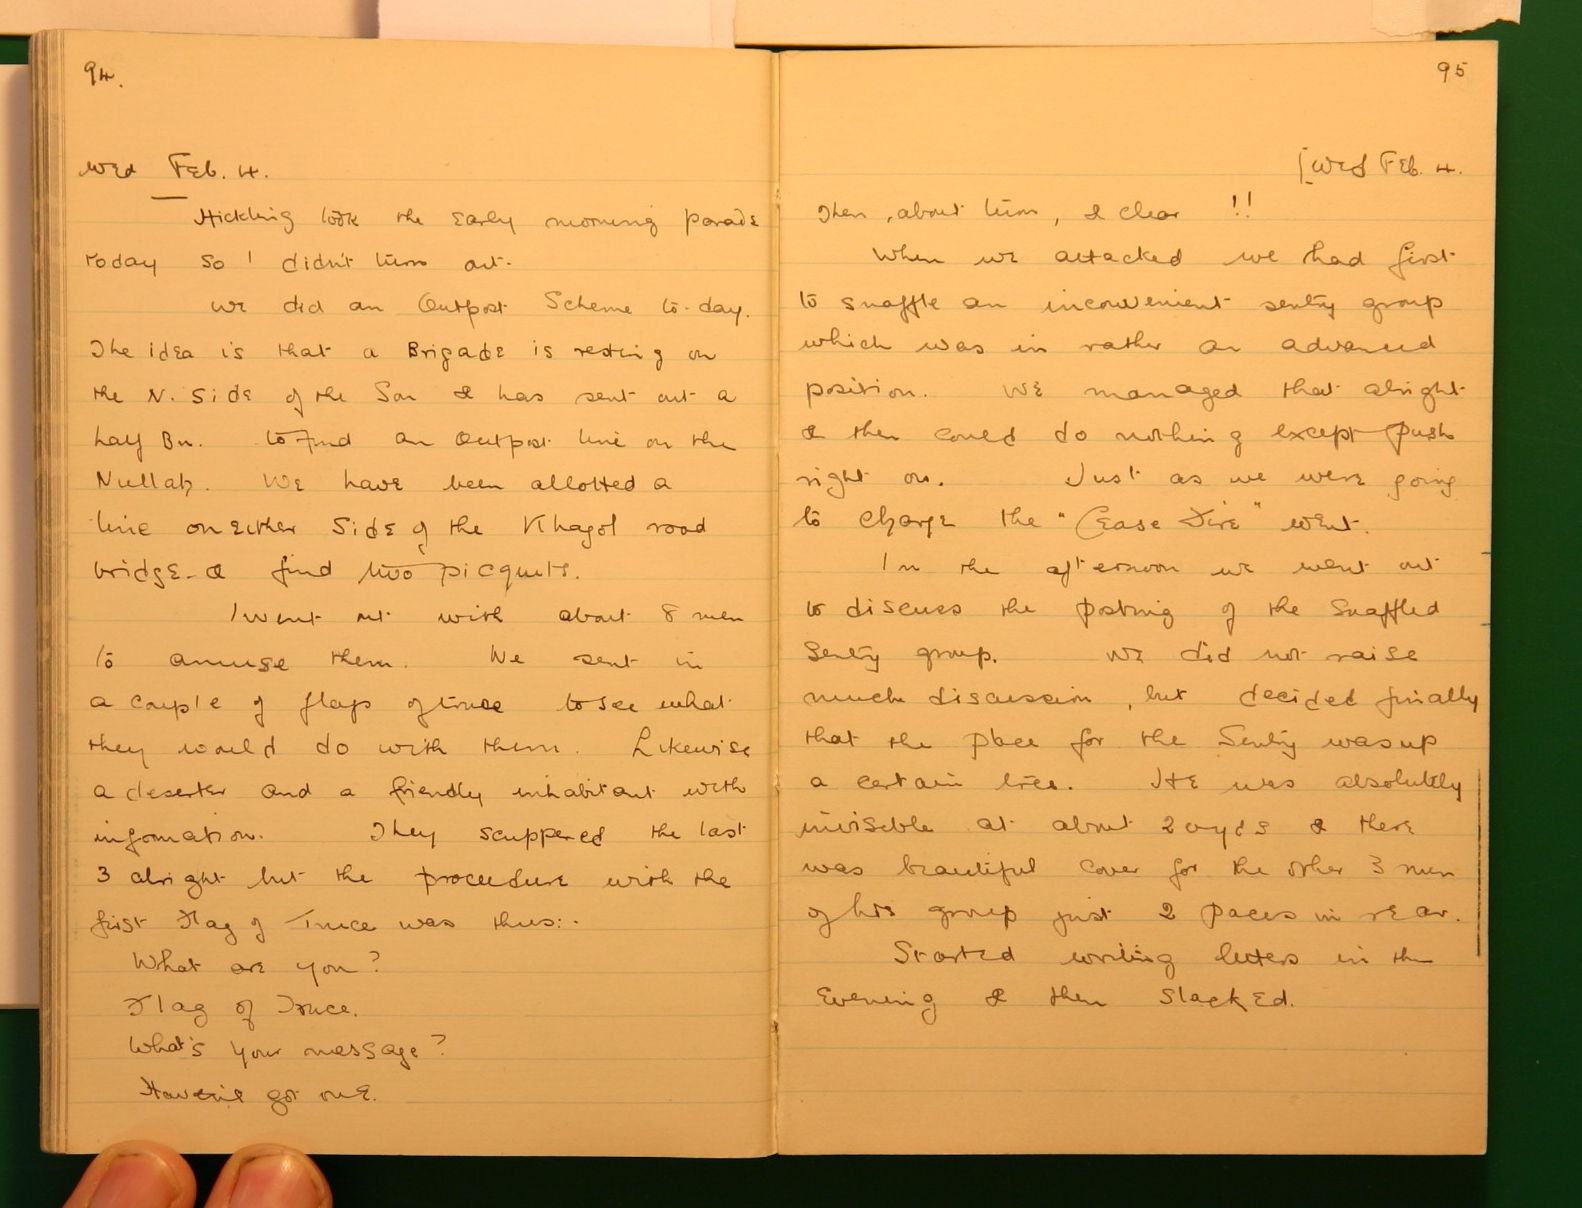 94.
Wed Feb. 4.
Hickling took the early morning parade
today so I didn't turn out.
We did an Outpost Scheme to-day.
The idea is that a Brigade is resting on
the N. side of the Son & has sent out a
half Bn. to find an Outpost line on the
Nullah. We have been allotted a
line on either side of the Khagol road
bridge - & find two picquets.
I went out with about 8 men
to amuse them. We sent in
a couple of flags of truce to see what
they would do with them. Likewise
a deserter and a friendly inhabitant with
information. They scuppered the last
3 alright but the procedure with the
first Flag of Truce was thus:-
What are you?
Flag of Truce.
What's your message?
Haven't got one.
95
[Wed Feb. 4.
Then, about turn, & clear !!
When we attacked we had first
to snaffle an inconvenient sentry group
which was in rather an advanced
position. We managed that alright
& then could do nothing except push
right on. Just as we were going
to charge the "Cease Fire" went.
In the afternoon we went out
to discuss the posting of the snaffled
sentry group. We did not raise
much discussion, but decided finally
that the place for the Sentry was up
a certain tree. He was absolutely
invisible at about 20 yds & there
was beautiful cover for the other 3 men
of his group just 2 paces in rear.
Started writing letters in the
evening & then slacked.